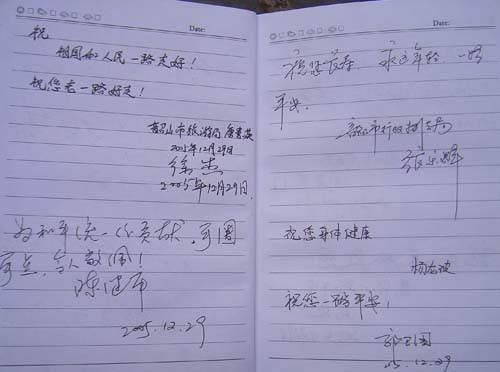 Date:
祝
祖国和人民一路走好！
祝您老一路好走！
韶山市旅游局
2005年12月29日
徐杰
2005年12月29日.
为和平统一作贡献，可圈
可点，令人敬佩！
陈建军
2005.12.29
Date:
祝您长寿、永远年轻、一路
平安.
韶山市行政执法局
祝您身体健康
祝您一路平安！
05.12.29